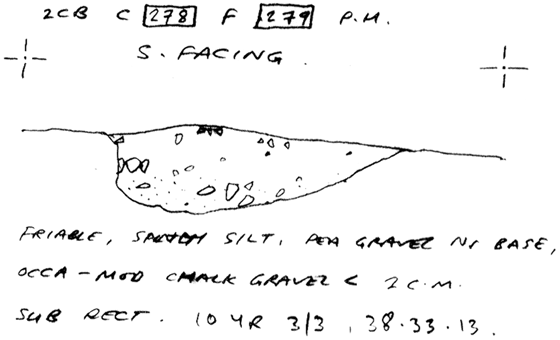 2CB C 278 F 279 P.H.
S. FACING.
FRIABLE, SILT, PEA GRAVEL NR BASE,
OCCA - MOD CHALK GRAVEL < 2 C.M.
SUB RECT. 10 YR 3/3, 38.33.13.